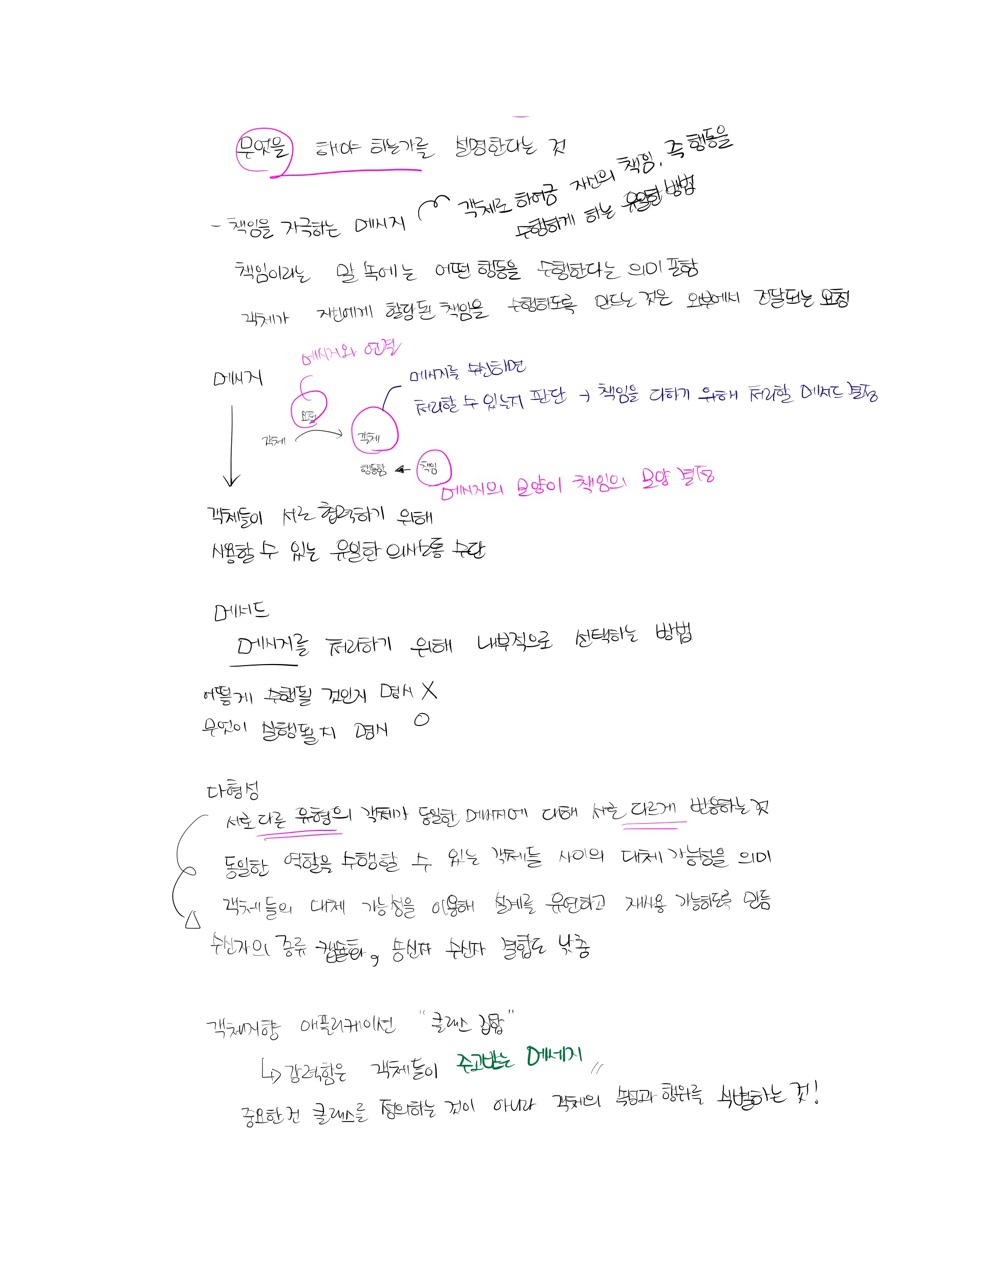 무엇을 해야 하는가를 설명한다는 것
- 책임을 자극하는 메시지
객체로 하여금 자신의 책임, 즉 행동을
수행하게 하는 유일한 방법
책임이라는 말 속에는 어떤 행동을 수행한다는 의미 포함
객체가 자신에게 할당된 책임을 수행하도록 만드는 것은 외부에서 전달되는 요청
메시지와 연결
메시지
메시지를 수신하면
처리할 수 있는지 판단 → 책임을 다하기 위해 처리할 메서드 결정
요청
객체
객체
행동함 ← 책임
메시지의 모양이 책임의 모양 결정
객체들이 서로 협력하기 위해
사용할 수 있는 유일한 의사소통 수단
메서드
메시지를 처리하기 위해 내부적으로 선택하는 방법
어떻게 수행될 것인지 명시 X
무엇이 실행될지 명시 O
다형성
서로 다른 유형의 객체가 동일한 메시지에 대해 서로 다르게 반응하는 것
동일한 역할을 수행할 수 있는 객체들 사이의 대체 가능성을 의미
객체들의 대체 가능성을 이용해 설계를 유연하고 재사용 가능하도록 만듦
수신자의 종류 캡슐화, 송신자 수신자 결합도 낮춤
객체지향 애플리케이션 "클래스 집합"
↳ 강력함은 객체들이 주고받는 메세지 "
중요한건 클래스를 정의하는 것이 아니라 객체의 속성과 행위를 식별하는 것!